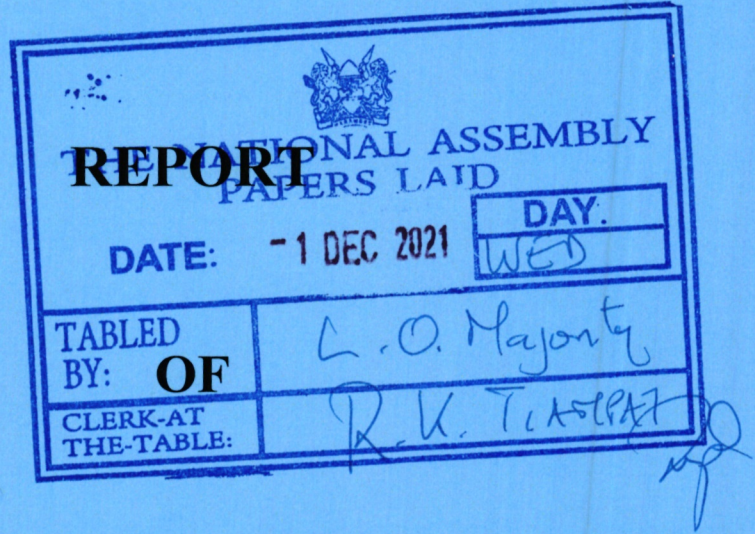 THE NATIONAL ASSEMBLY
REPORT
PAPERS LAID
DAY.
DATE: -1 DEC 2021 WED
TABLED BY: L.O. Majority
OF
CLERK-AT THE-TABLE: R.K.